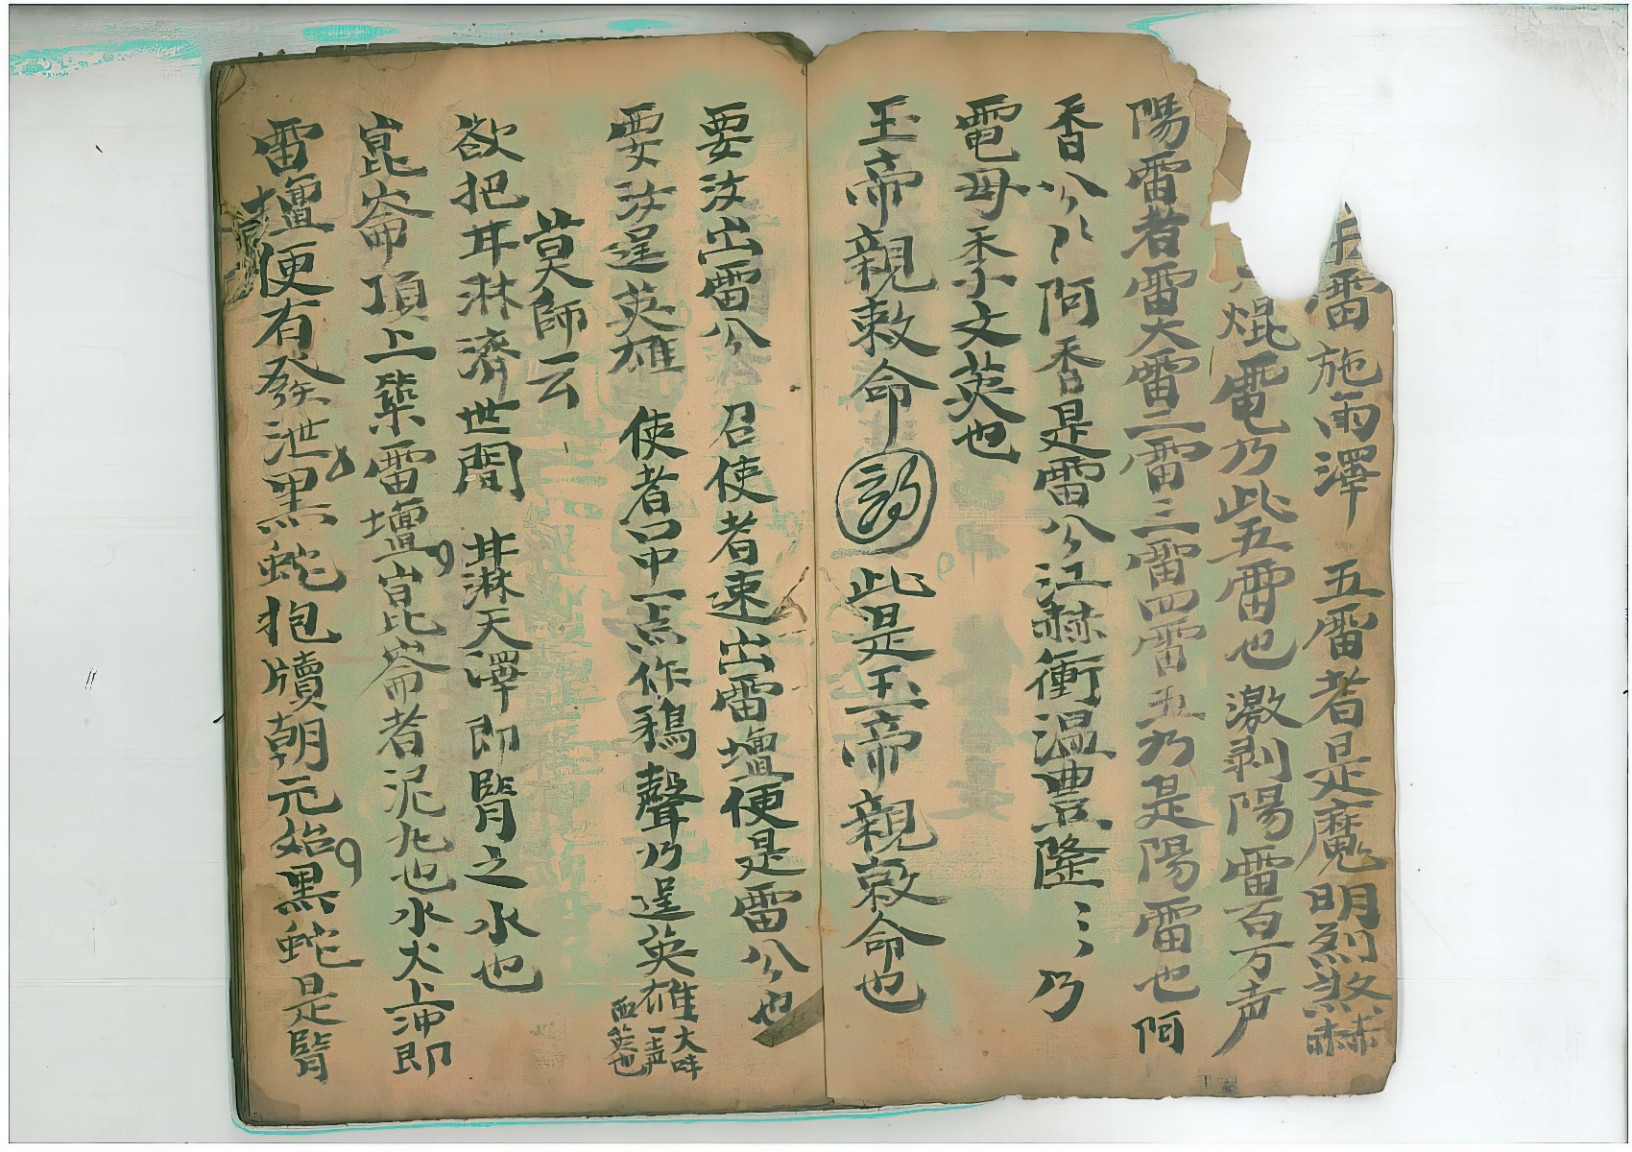 雷施雨澤 五雷者是魔明烈煞赫
焜電乃此五雷也 激剥陽雷百万声
陽雷者雷大雷二雷三雷四雷五乃是陽雷也 阿
香公〻阿香是雷公江赫衝温豊隆〻乃
電母秀文英也
玉帝親敕命 此是玉帝親敕命也
要汝出雷公 召使者速出雷壇便是雷公也
要汝逞英雄 使者口中一点作鵶聲乃逞英雄
莫大師云
欲把耳淋濟世間 井淋天澤即腎之水也
崑崙頂上築雷壇 崑崙者泥丸也水火上沖即
雷壇便有發泄 黑蛇抱牘朝元始 黑蛇是腎